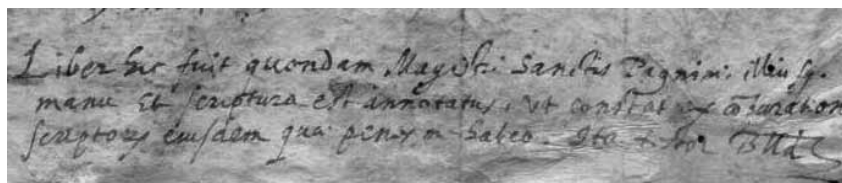 Liber hic fuit quondam Magistri Sanctis Pagnini: illiusq.
manu Et scriptura est annotatus, ut constat ex cōparation
scriptorū eiusdem qua penes m habeo. Ita testor